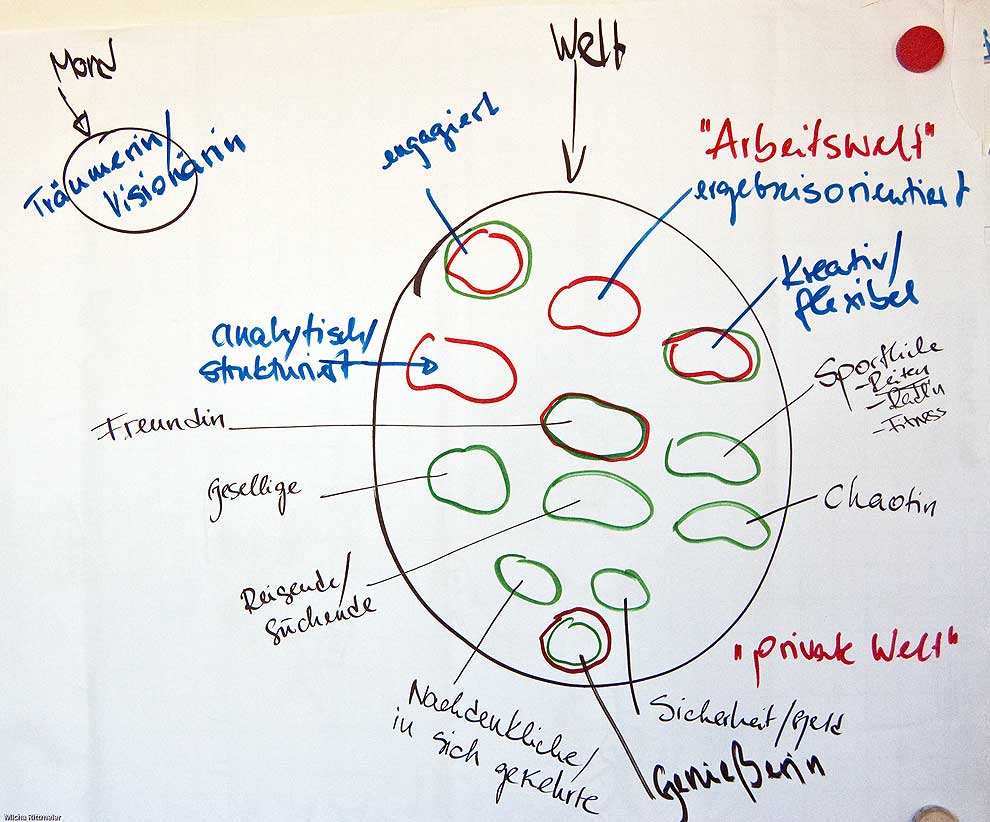 Mond
Welt
Träumerin/
Visionärin
engagiert
"Arbeitswelt"
ergebnisorientiert
Kreativ/
flexibel
analytisch/
strukturiert
Sportliche
-Reiten
-Radl'n
-Fitness
Freundin
Gesellige
Chaotin
Reisende/
Suchende
"private Welt"
Nachdenkliche/
in sich gekehrte
Sicherheit/Geld
Genießerin
Micha Rittmeier